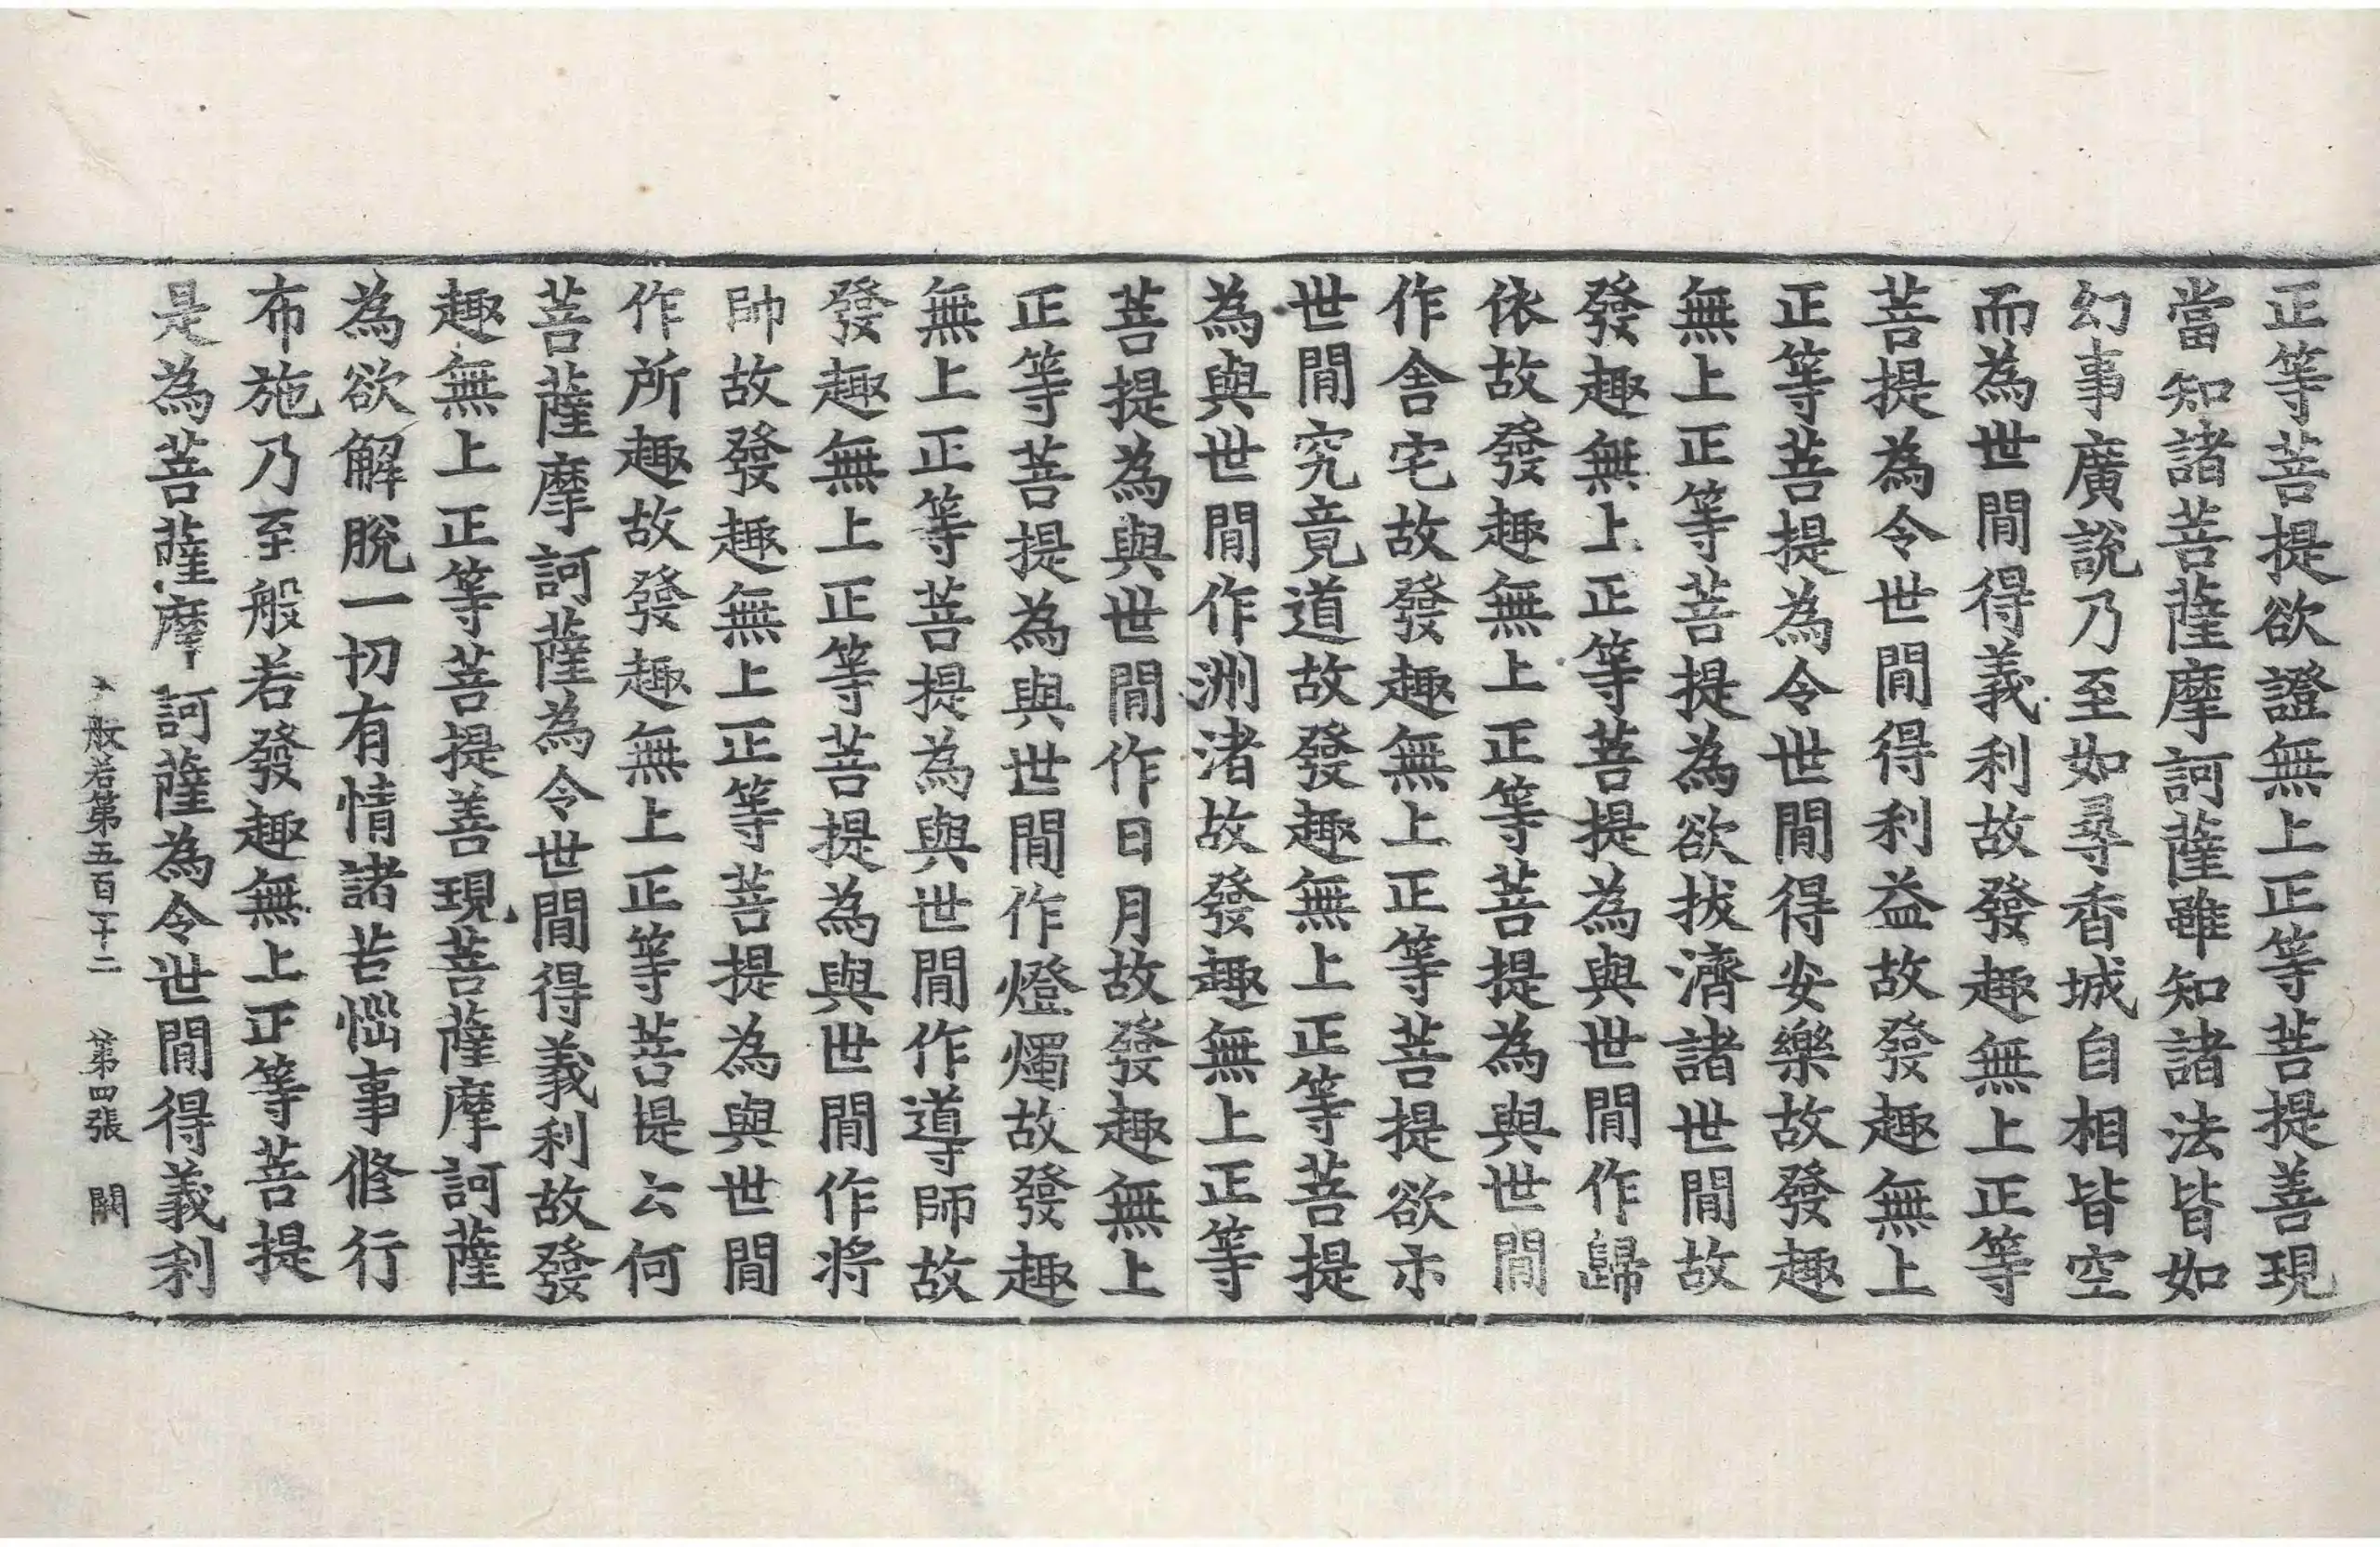 正等菩提欲證無上正等菩提善現
當知諸菩薩摩訶薩雖知諸法皆如
幻事廣說乃至如尋香城自相皆空
而為世間得義利故發趣無上正等
菩提為令世間得利益故發趣無上
正等菩提為令世間得安樂故發趣
無上正等菩提為欲拔濟諸世間故
發趣無上正等菩提為與世間作歸
依故發趣無上正等菩提為與世間
作舍宅故發趣無上正等菩提欲示
世間究竟道故發趣無上正等菩提
為與世間作洲渚故發趣無上正等
菩提為與世間作日月故發趣無上
正等菩提為與世間作燈燭故發趣
無上正等菩提為與世間作導師故
發趣無上正等菩提為與世間作將
帥故發趣無上正等菩提為與世間
作所趣故發趣無上正等菩提云何
菩薩摩訶薩為令世間得義利故發
趣無上正等菩提善現菩薩摩訶薩
為欲解脫一切有情諸苦惱事修行
布施乃至般若發趣無上正等菩提
是為菩薩摩訶薩為令世間得義利
般若第五百十二 第四張 闕